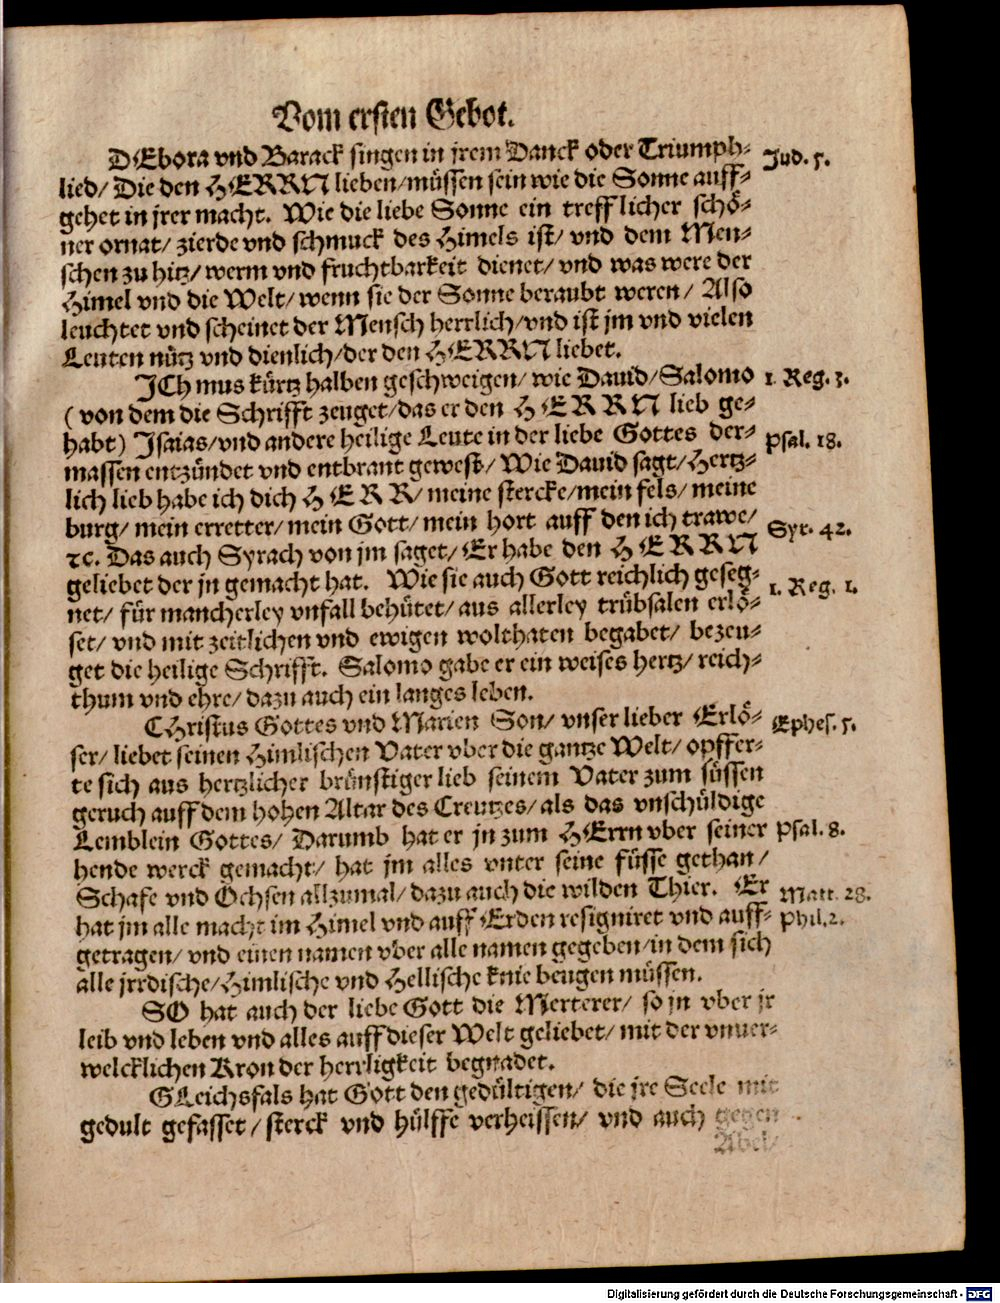 Vom ersten Gebot.
DEbora vnd Barack singen in jrem Danck oder Triumph- Jud. 5.
lied/ Die den HERRN lieben/müssen sein wie die Sonne auff-
gehet in jrer macht. Wie die liebe Sonne ein trefflicher schö-
ner ornat/ zierde vnd schmuck des Himels ist/ vnd dem Men-
schen zu hitz/ werm vnd fruchtbarkeit dienet/ vnd was were der
Himel vnd die Welt/ wenn sie der Sonne beraubt weren/ Also
leuchtet vnd scheinet der Mensch herrlich/vnd ist jm vnd vielen
Leuten nütz vnd dienlich/der den HERRN liebet.
JCh mus kürtz halben geschweigen/ wie Dauid/Salomo 1. Reg. 3.
(von dem die Schrifft zeuget/das er den HERRN lieb ge-
habt) Jsaias/vnd andere heilige Leute in der liebe Gottes der- Psal. 18.
massen entzündet vnd entbrant gewest/ Wie Dauid sagt/Hertz-
lich lieb habe ich dich HERR/ meine stercke/mein fels/ meine
burg/ mein erretter/ mein Gott/ mein hort auff den ich trawe/ Syr. 42.
ꝛc. Das auch Syrach von jm saget/ Er habe den HERRN
geliebet der jn gemacht hat. Wie sie auch Gott reichlich geseg- 1. Reg. 1.
net/ für mancherley vnfall behütet/ aus allerley trübsalen erlö-
set/ vnd mit zeitlichen vnd ewigen wolthaten begabet/ bezeu-
get die heilige Schrifft. Salomo gabe er ein weises hertz/ reich-
thum vnd ehre/ dazu auch ein langes leben.
CHristus Gottes vnd Marien Son/ vnser lieber Erlö- Ephes. 5.
ser/ liebet seinen Himlischen Vater vber die gantze Welt/ opffer-
te sich aus hertzlicher brünstiger lieb seinem Vater zum süssen
geruch auff dem hohen Altar des Creutzes/ als das vnschüldige
Lemblein Gottes/ Darumb hat er jn zum HErrn vber seiner Psal. 8.
hende werck gemacht/ hat jm alles vnter seine füsse gethan/
Schafe vnd Ochsen allzumal/ dazu auch die wilden Thier. Er Matt. 28.
hat jm alle macht im Himel vnd auff Erden resigniret vnd auff- Phil. 2.
getragen/ vnd einen namen vber alle namen gegeben/in dem sich
alle jrrdische/Himlische vnd Hellische knie beugen müssen.
SO hat auch der liebe Gott die Merterer/ so jn vber jr
leib vnd leben vnd alles auff dieser Welt geliebet/ mit der vnuer-
welcklichen Kron der herrligkeit begnadet.
GLeichsfals hat Gott den gedültigen/ die jre Seele mit
gedult gefasset/ sterck vnd hülffe verheissen/ vnd auch gegen
Abel/
Digitalisierung gefördert durch die Deutsche Forschungsgemeinschaft - DFG